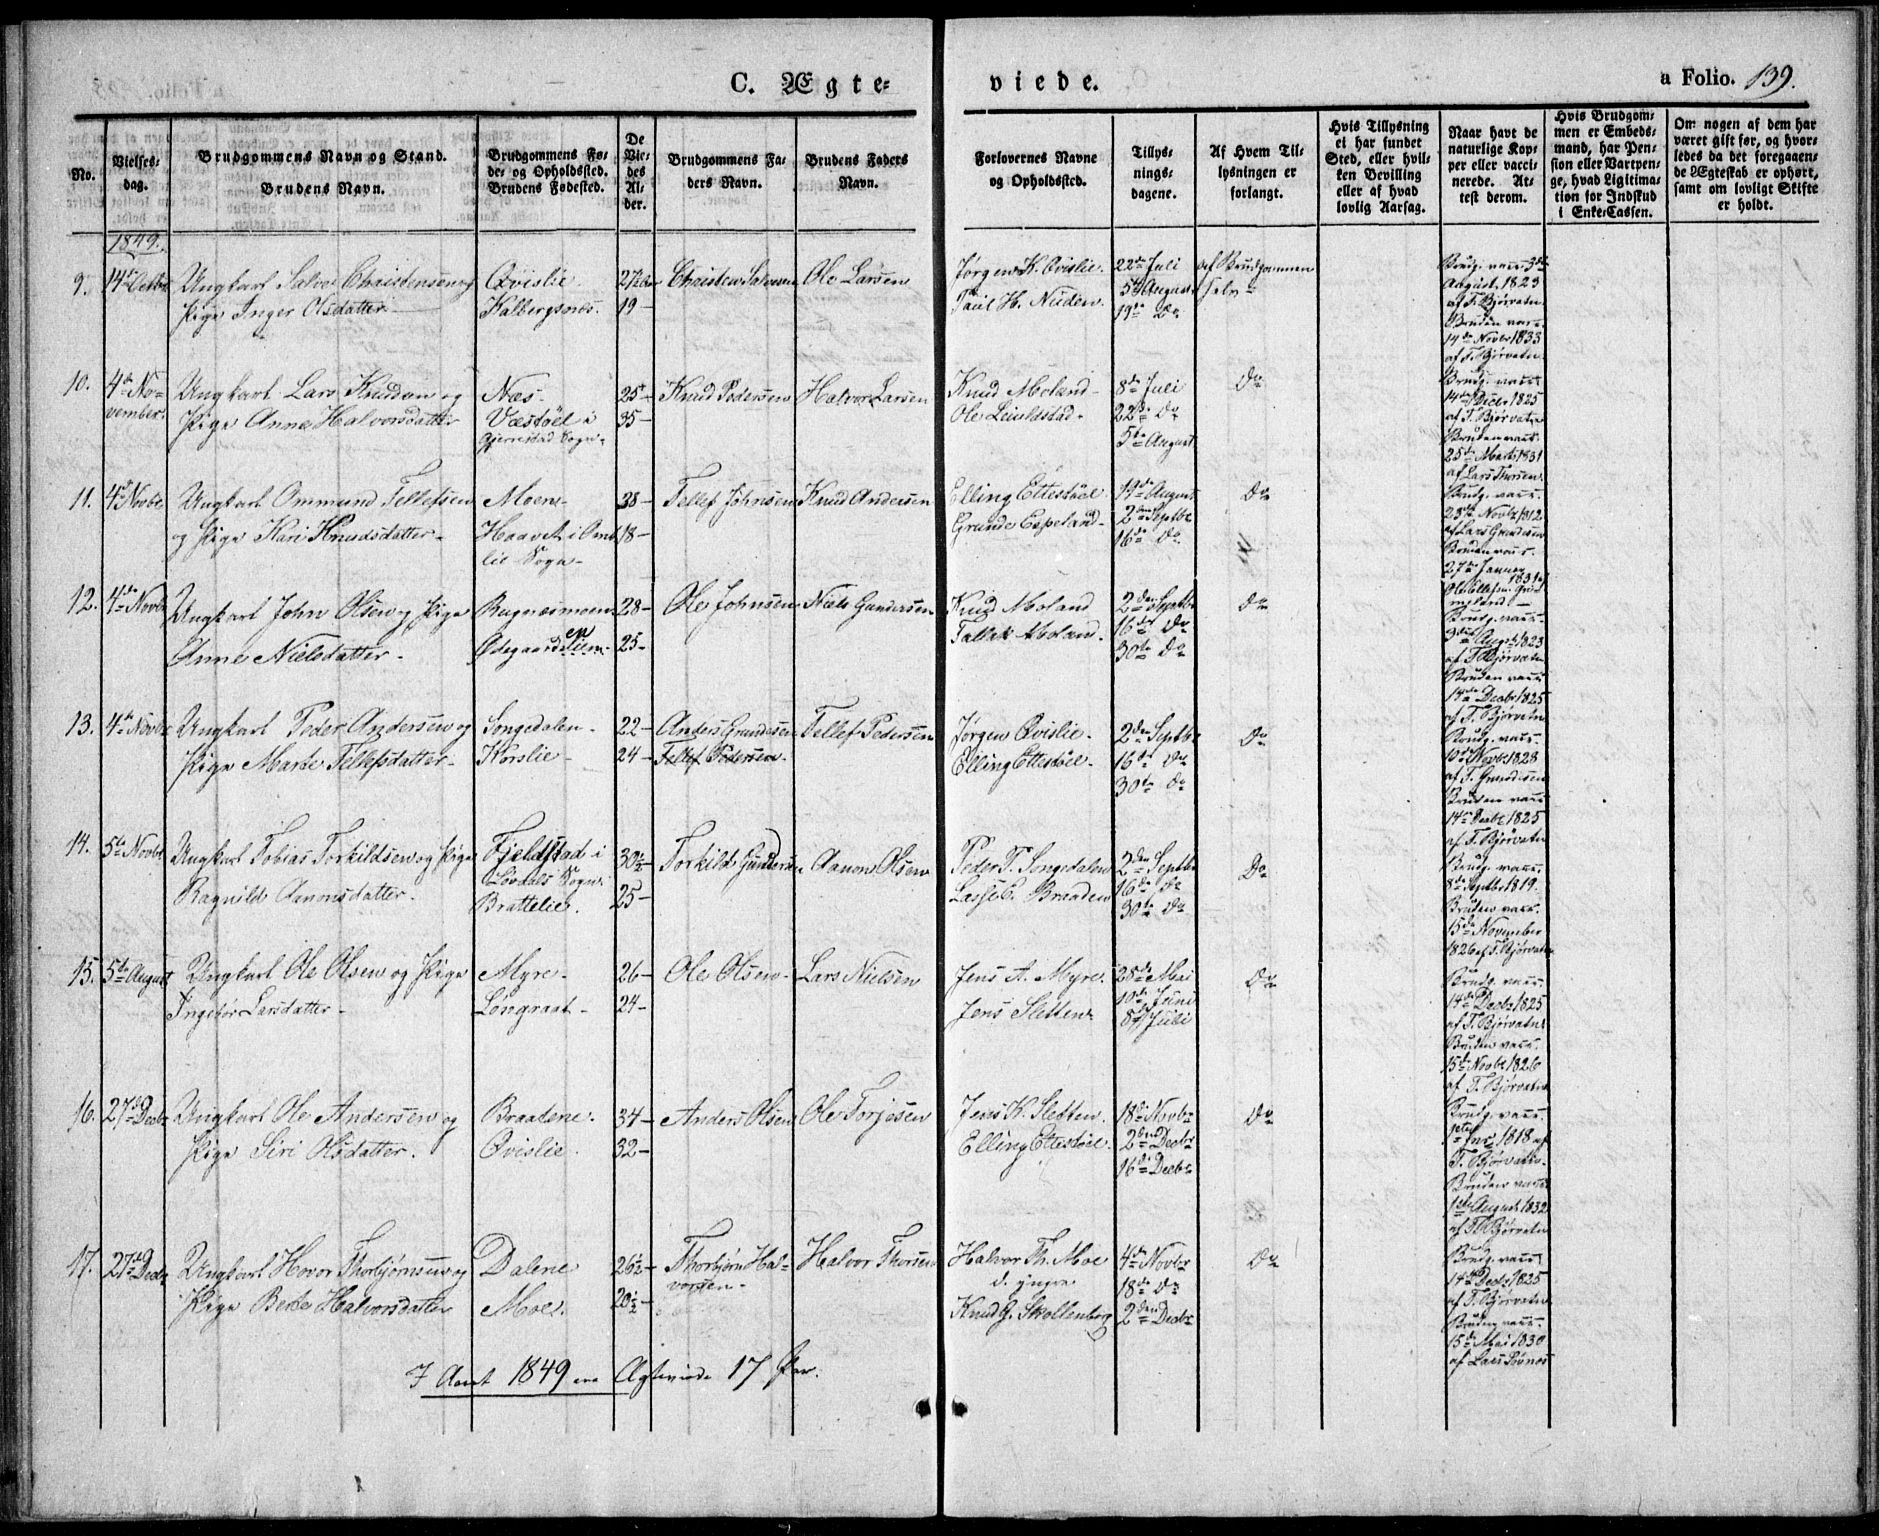 C. Ægte-
viede.
a Folio. 139.
No.
Vielses-
dag.
Brudgommens Navn og Stand.
Brudens Navn.
Brudgommens Fø-
de- og Opholdssted.
Brudens Fødested.
De
Vie-
des
Al-
der.
Brudgommens Fa-
ders Navn.
Brudens Faders
Navn.
Forlovernes Navne
og Opholdssted.
Tillys-
nings-
dagene.
Af Hvem Til-
lysningen er
forlangt.
Hvis Tillysning
ei har fundet
Sted, eller hvil-
ken Bevilling
eller af hvad
lovlig Aarsag.
Naar havt de
naturlige Kop-
per eller vacci-
nerede. At-
test derom.
Hvis Brudgom-
men er Embeds-
mand, har Pen-
sion eller Vartpen-
ge, hvad Ligitima-
tion for Indskud
i Enke-Cassen.
Om nogen af dem har
været gift før, og hvor-
ledes da det foregaaen-
de Ægteskab er ophørt,
samt om lovligt Skifte
er holdt.
1849.
9. 14de Octbr Ungkarl Salve Christensen og Qvislie 27½ Aar Christen Salvesen Ole Larsen Jørgen K. Qvislie. 22de Juli af Brudgommen
Pige Inger Olsdatter Kalbergsnes. 19 — Paul H. Nuden. 5te August selv
19de Do
Brudg. vacc. 3de
August 1823
af T. Bjørvatn
Bruden vacc.
14de Novbr 1833
af T. Bjørvatn
10. 4de No- Ungkarl Lars Knudsen og Næs. 25 — Knud Pedersen Halvor Larsen Knud Moland 8de Juli Do
vember. Pige Anne Halvorsdatter Væstøl i 35 — Ole Leuldstad 22de Do
Gjerrestad Sogn 5te August
Brudg. vacc.
14de Decbr 1825
af T. Bjørvatn
Bruden vacc.
25de Marts 1831
af Lars Thorsen.
11. 4de Novbr Ungkarl Ommund Tellefsen Moen 38 — Tellef Johnsen Knud Andersen Elling Ettestøel 19de August Do
og Pige Kari Knudsdatter Haavet i Om- 18 — Grunde Espeland 2den Septbr
lie Sogn 16de Do
Brudg. vacc.
23de Novbr 1812
af Lars Gundersen
Bruden vacc.
27de Januar
1831 af
Ole Ellefsen
12. 4de Novbr Ungkarl John Olsen og Pige Ragnesmoen 28 — Ole Johnsen Niels Gundersen Knud Moland 2den Septbr Do
Anne Nielsdatter Ødegaardslien 25 — Tallak Moland. 16de Do
30te Do
Brudg. vacc.
3die August 1823
af T. Bjørvatn
Bruden vacc.
14de Decbr 1825
af T. Bjørvatn
13. 4de Novbr Ungkarl Peder Andersen og Songedalen 22 — Anders Gundersen Tellef Pedersen Jørgen Qvislie. 2den Septbr Do
Pige Marte Tellefsdatter Korslie 24 — Tellef Pedersen Elling Ettestøel 16de Do
30te Do
Brudg. vacc.
10de Novbr 1828
af T. Gundersen
Bruden vacc.
14de Decbr 1825
af T. Bjørvatn
14. 5te Novbr Ungkarl Tobias Torkildsen og Pige Fjeldstad i 30½ Torkild Gundersen Aanon Olsen Peder T. Songedalen 2den Septbr Do
Løvdals Sogn.
Ragnild Aanonsdatter. Brattelie. 25 — Lasse C. Braaden 16de Do
30te Do
Brudg. vacc.
8de Septbr 1819.
Bruden vacc.
15de November
1826 af T. Bjørvatn
15. 5te August Ungkarl Ole Olsen og Pige Myre. 26 — Ole Olsen Lars Nielsen Jens A. Myre. 28de Mai Do
Ingebor Larsdatter Longraat 24 — Jens Sletten 10de Juni
8de Juli
Brudg. vacc.
14de Decbr 1825
af T. Bjørvatn
Bruden vacc.
15de Novbr 1826
af T. Bjørvatn
16. 27de Decbr Ungkarl Ole Andersen og Braatene. 34 — Anders Olsen Ole Torjesen Jens K. Sletten. 18de Novbr Do
Pige Siri Olsdatter. Qvislie. 32 — Elling Ettestøel. 2den Decbr
16de Decbr
Brudg. vacc.
1818 af
T. Bjørvatn.
Bruden vacc.
1ste August 1832
af T. Bjørvatn
17. 27de Decbr Ungkarl Hovor Thorbjørnsen og Dalene 26½ — Thorbjørn Hal- Halvor Thorsen Halvor Th. Moe 4de Novbr Do
vorsen d. yngre 18de Do
Pige Berte Halvorsdatter Moe. 20½ — Knud G. Skollenborg 2den Decbr
Brudg. vacc.
14de Decbr 1825
af T. Bjørvatn
Bruden vacc.
15de Mai 1830
af Lars
I Aaret 1849 ere Ægteviede 17 Par.